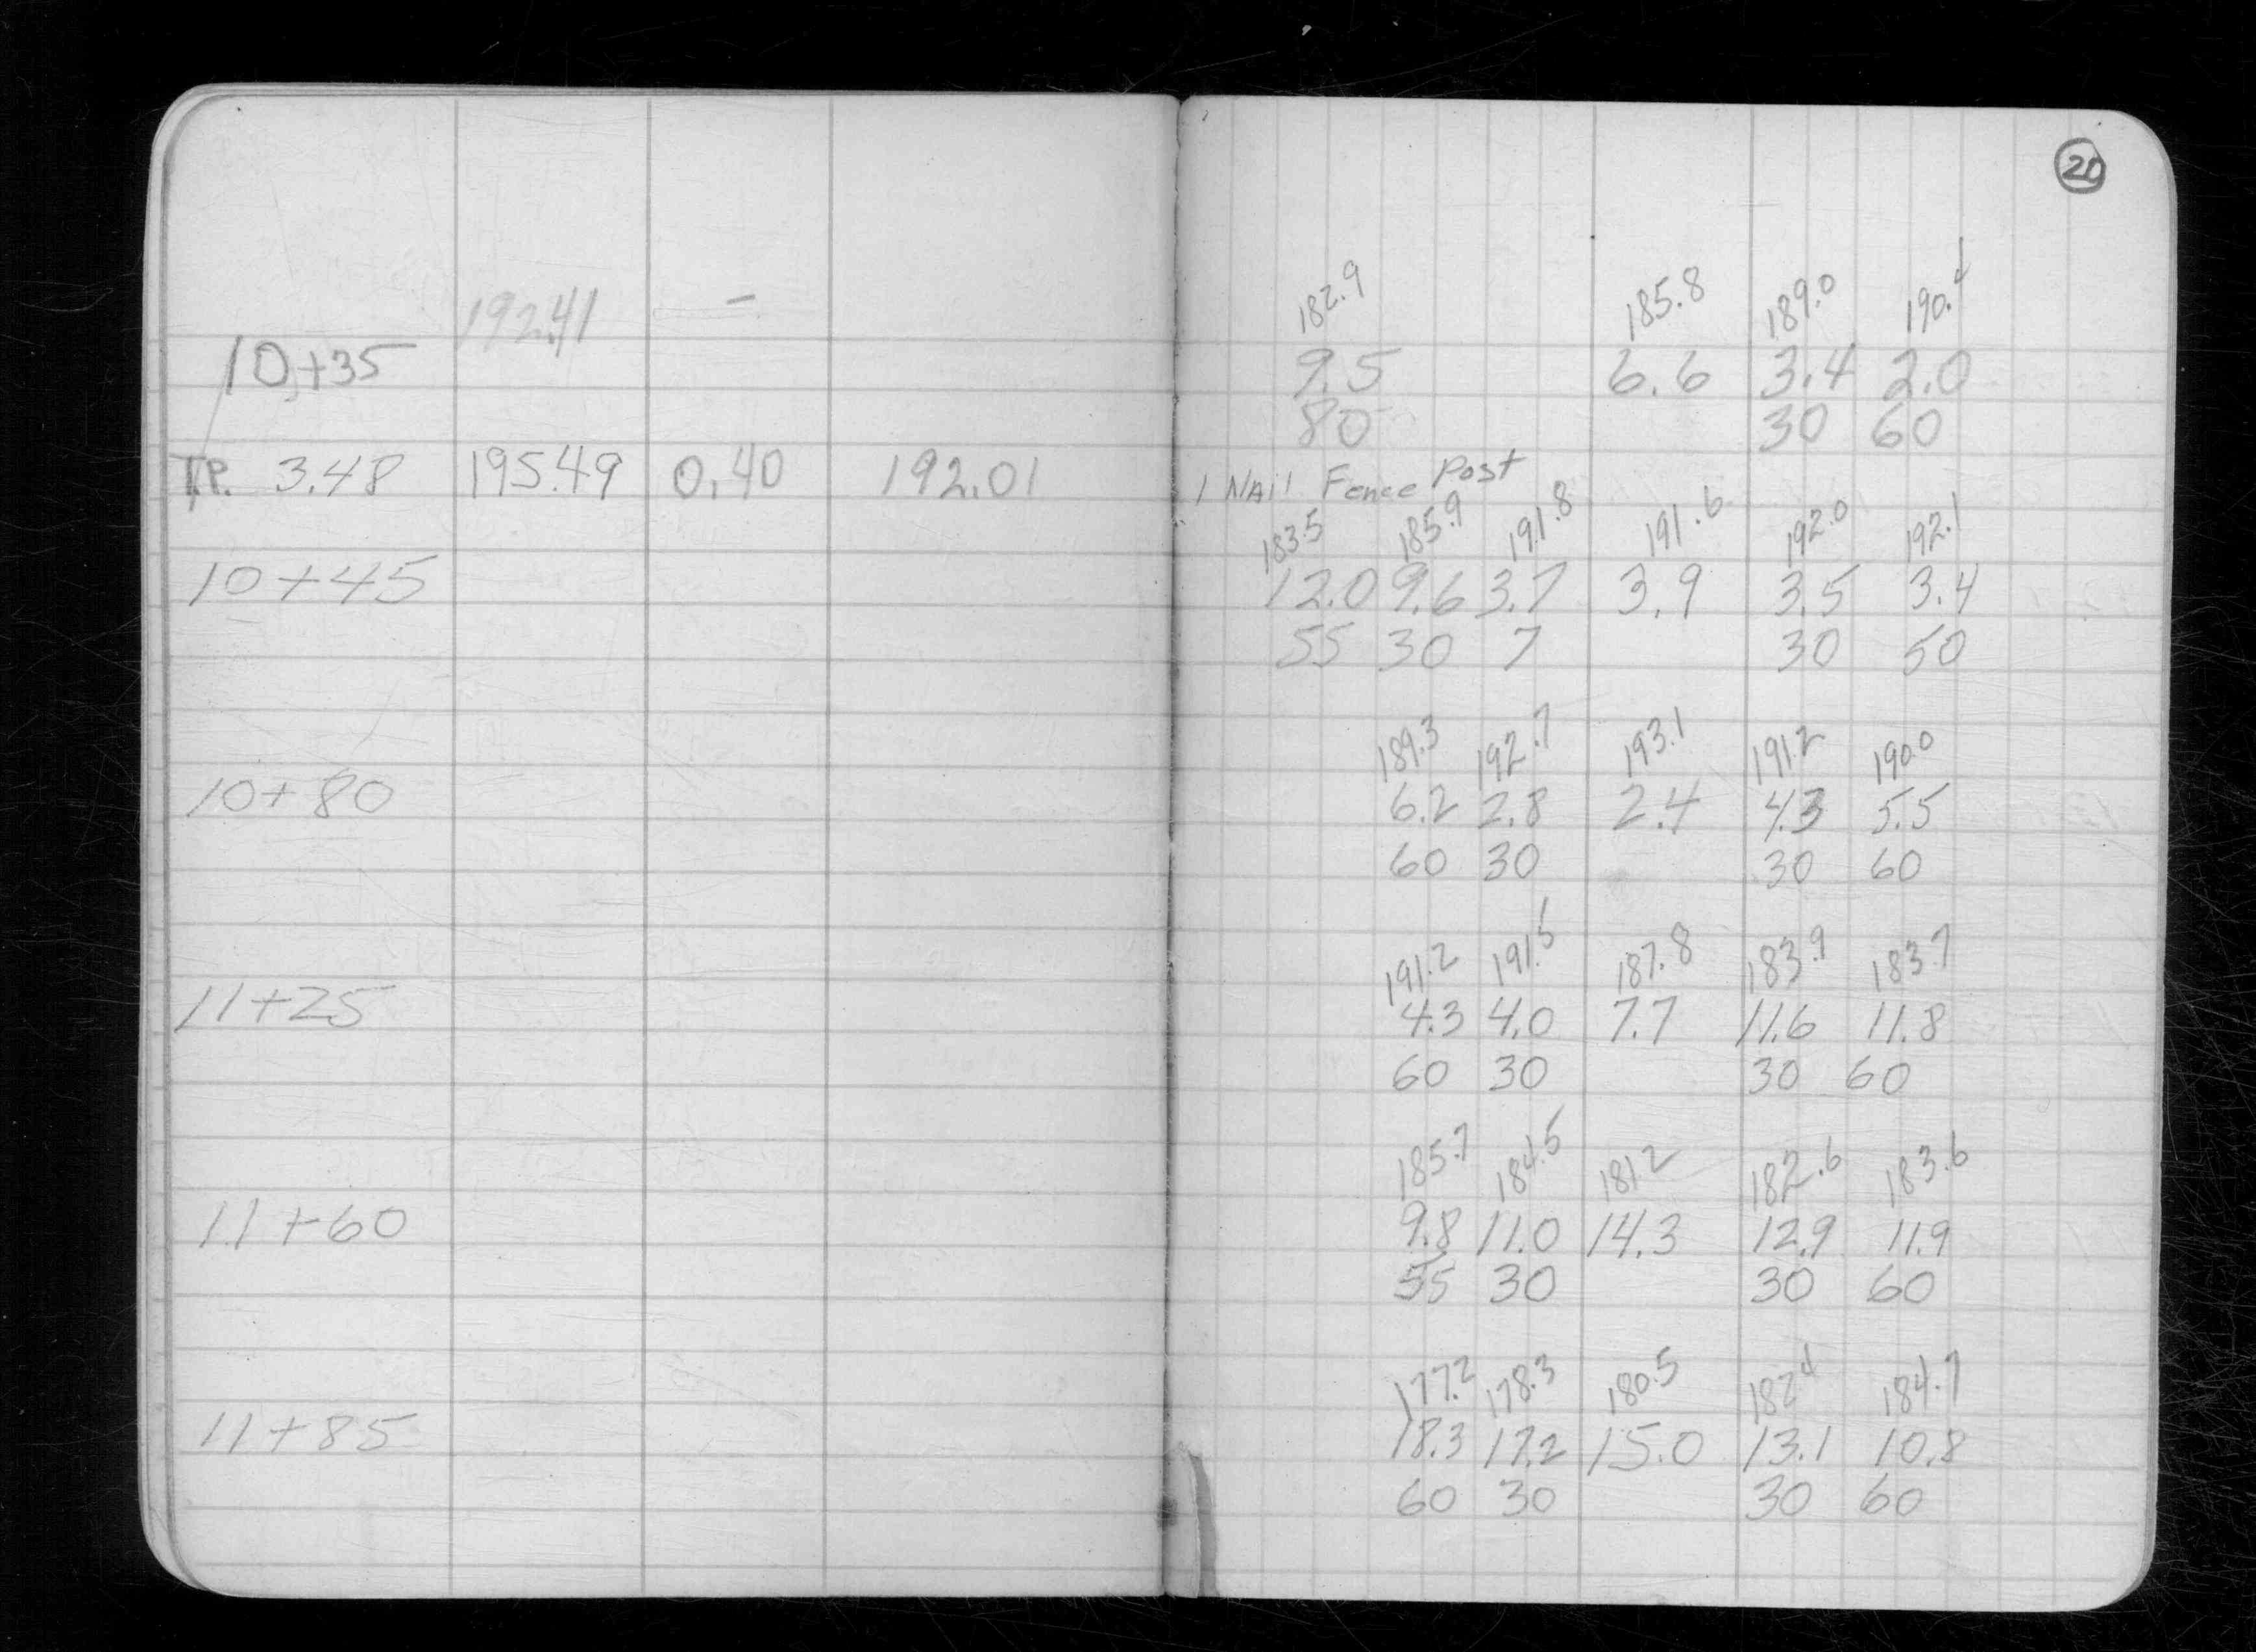 20
192.41 –
182.9 185.8 189.0 190.4
10+35 9.5 6.6 3.4 2.0
80 30 60
T.P. 3.48 195.49 0.40 192.01 1 Nail Fence Post
183.5 185.9 191.8 191.6 192.0 192.1
10+45 12.0 9.6 3.7 3.9 3.5 3.4
55 30 7 30 50
189.3 192.7 193.1 191.2 190.0
10+80 6.2 2.8 2.4 4.3 5.5
60 30 30 60
191.2 191.5 187.8 183.9 183.7
11+25 4.3 4.0 7.7 11.6 11.8
60 30 30 60
185.7 184.5 181.2 182.6 183.6
11+60 9.8 11.0 14.3 12.9 11.9
55 30 30 60
177.2 178.3 180.5 182.4 184.7
11+85 18.3 17.2 15.0 13.1 10.8
60 30 30 60